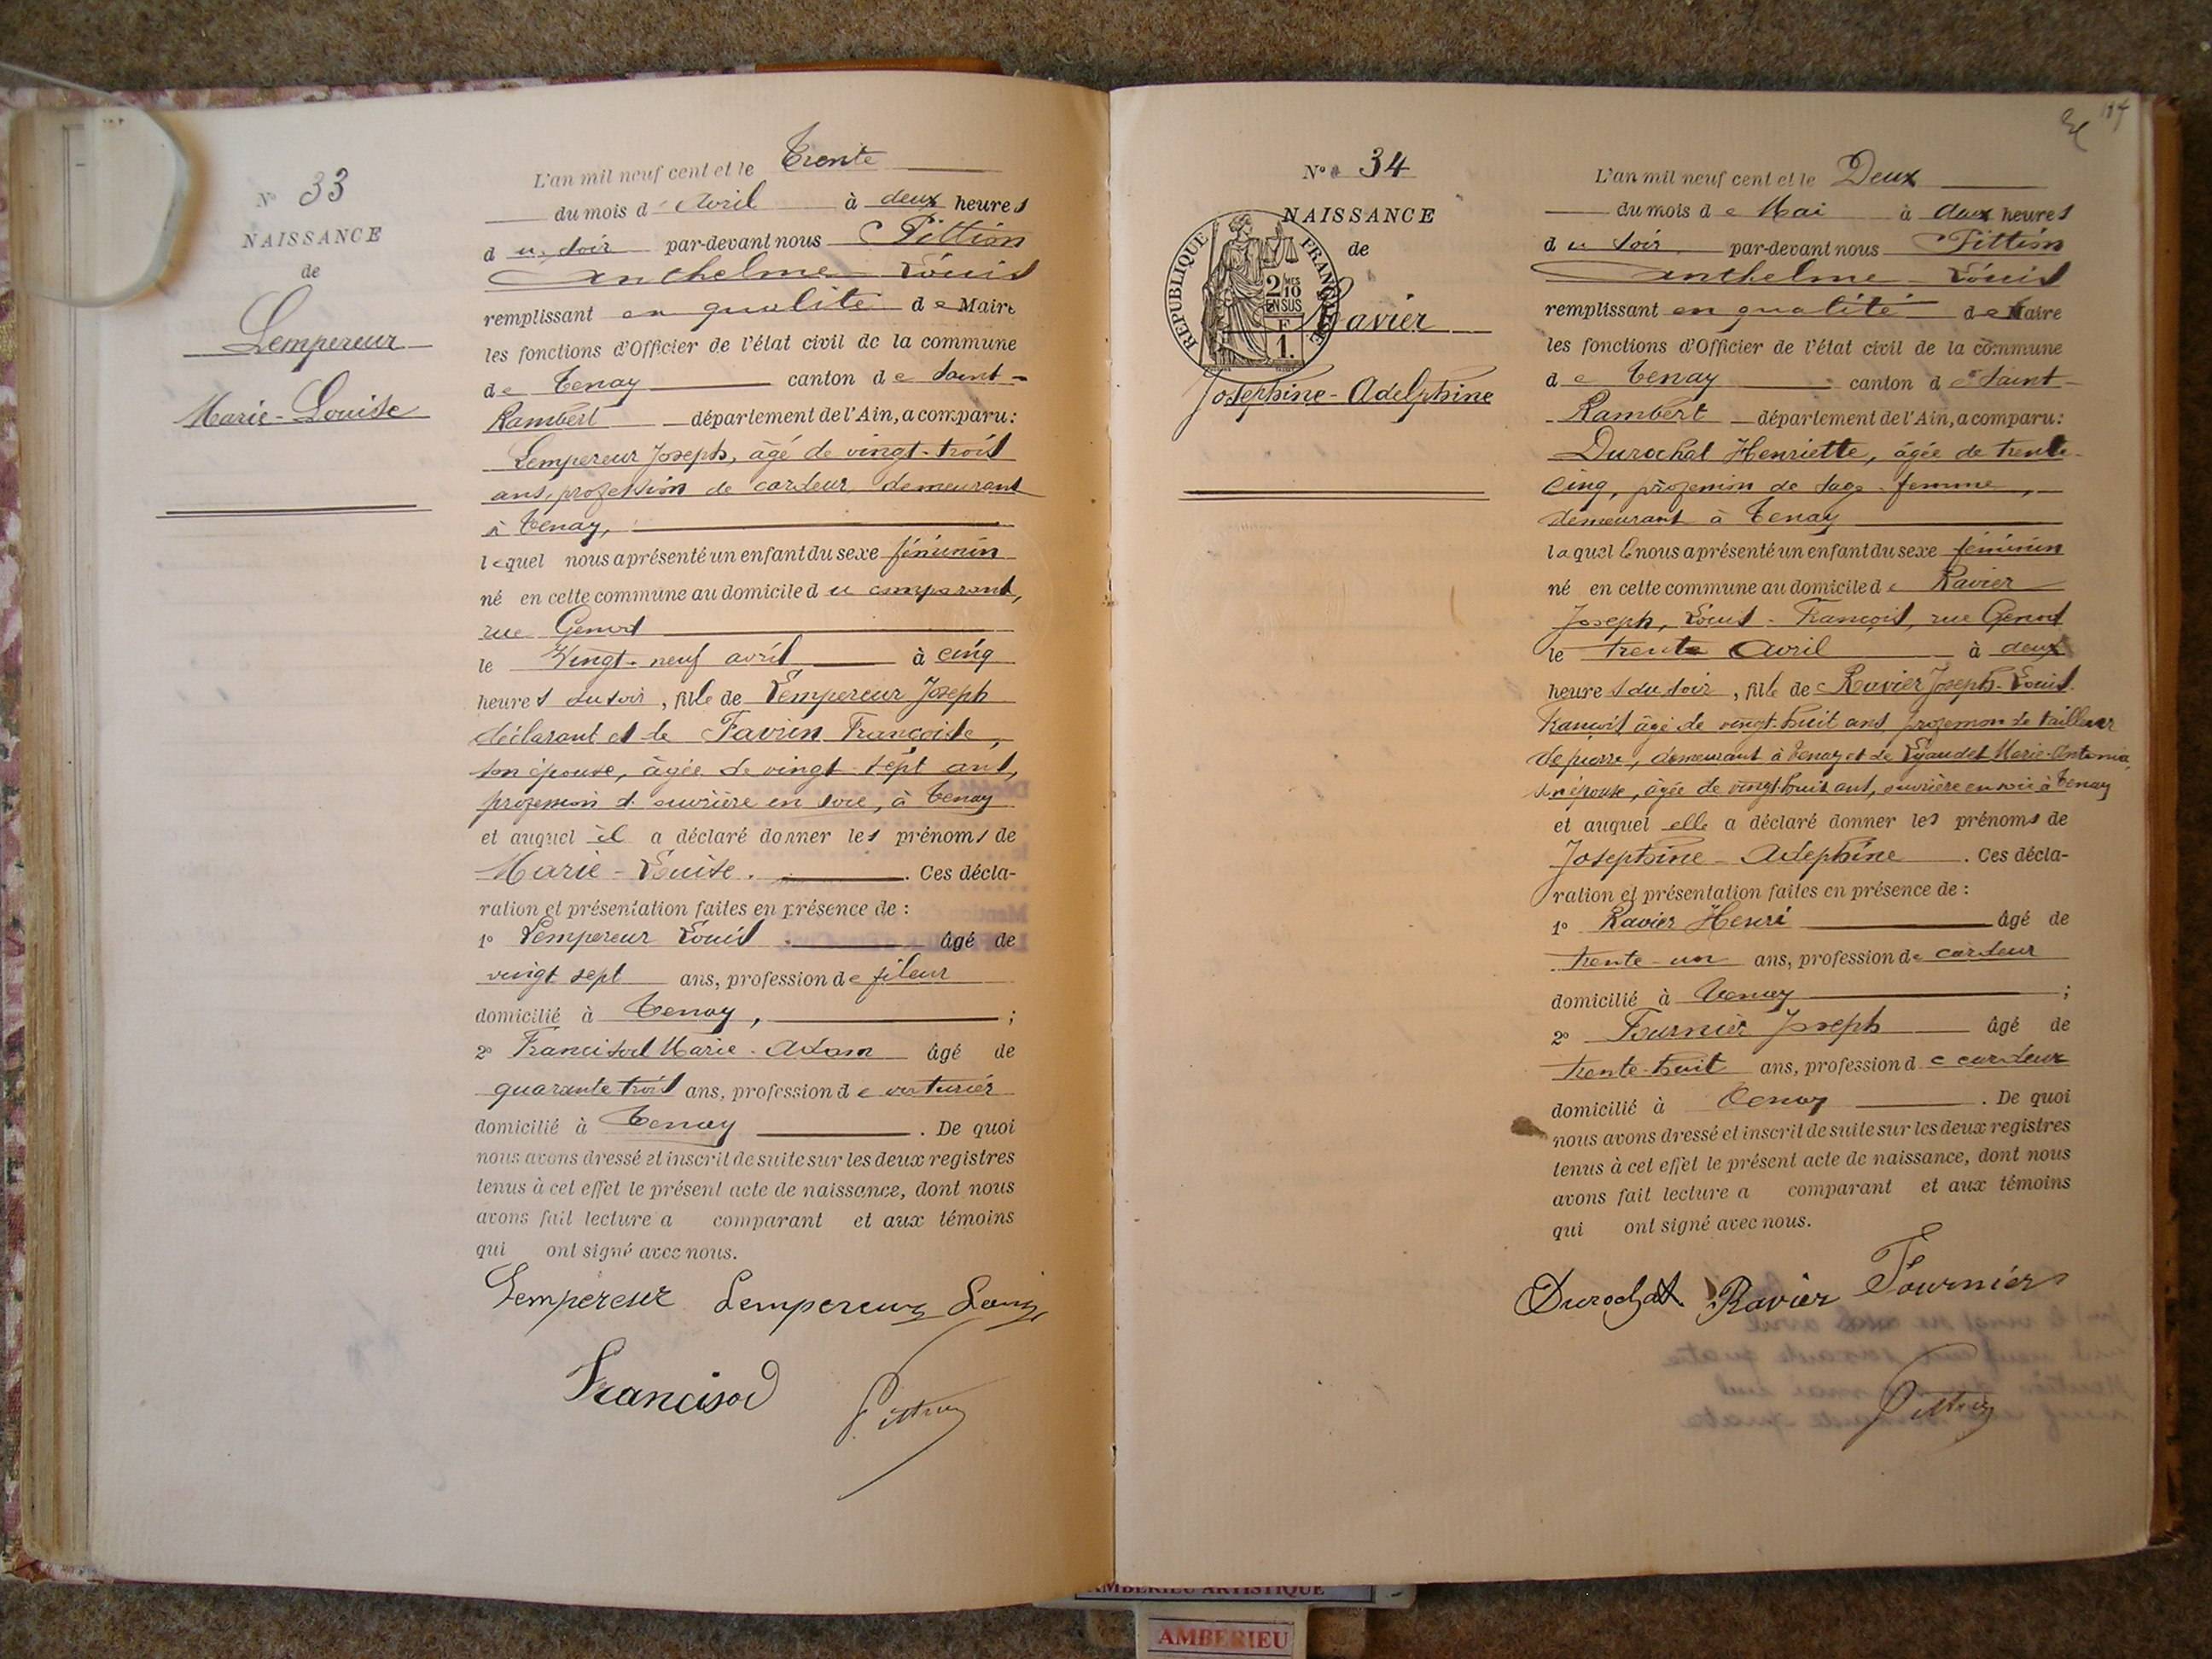 N° 33
NAISSANCE
de
Lempereur
Marie-Louise
L'an mil neuf cent et le Trente
du mois d'Avril à deux heures
du soir par-devant nous Pittion
Anthelme Louis
remplissant en qualité de Maire
les fonctions d'Officier de l'état civil de la commune
de Tenay canton de Saint-
Rambert département de l'Ain, a comparu:
Lempereur Joseph, âgé de vingt-trois
ans, profession de cardeur, demeurant
à Tenay,
lequel nous a présenté un enfant du sexe féminin
né en cette commune au domicile du comparant,
rue Genod
le Vingt-neuf avril à cinq
heures du soir, fille de Lempereur Joseph
déclarant et de Favrin Françoise,
son épouse, âgée de vingt-sept ans,
profession d'ouvrière en soie, à Tenay
et auquel il a déclaré donner les prénoms de
Marie-Louise. Ces décla-
ration et présentation faites en présence de :
1° Lempereur Louis âgé de
vingt sept ans, profession de fileur
domicilié à Tenay, ;
2° Francisod Marie-Adam âgé de
quarante-trois ans, profession de voiturier
domicilié à Tenay . De quoi
nous avons dressé et inscrit de suite sur les deux registres
tenus à cet effet le présent acte de naissance, dont nous
avons fait lecture a comparant et aux témoins
qui ont signé avec nous.
Lempereur Lempereur Louis
Francisod Pittion
N° 34
NAISSANCE
de
RÉPUBLIQUE FRANÇAISE
2/10MES
EN SUS
F
1.
Ravier
Josephine-Adelphine
L'an mil neuf cent et le Deux
du mois de Mai à deux heures
du soir par-devant nous Pittion
Anthelme-Louis
remplissant en qualité de Maire
les fonctions d'Officier de l'état civil de la commune
de Tenay canton de Saint-
Rambert département de l'Ain, a comparu:
Durochat Henriette, âgée de trente-
cinq, profession de sage-femme,
demeurant à Tenay
laquelle nous a présenté un enfant du sexe féminin
né en cette commune au domicile de Ravier
Joseph, Louis-François, rue Genod
le trente Avril à deux
heures du soir, fille de Ravier Joseph-Louis-
François âgé de vingt-huit ans profession de tailleur
de pierre, demeurant à Tenay et de Marie-Antonia,
son épouse, âgée de vingt-huit ans, ouvrière en soie à Tenay
et auquel elle a déclaré donner les prénoms de
Josephine-Adephine . Ces décla-
ration et présentation faites en présence de :
1° Ravier Henri âgé de
trente-un ans, profession de cardeur
domicilié à Tenay ;
2° Fournier Joseph âgé de
trente-huit ans, profession de cardeur
domicilié à Tenay . De quoi
nous avons dressé et inscrit de suite sur les deux registres
tenus à cet effet le présent acte de naissance, dont nous
avons fait lecture a comparant et aux témoins
qui ont signé avec nous.
Durochat Ravier Fournier
Pittion
AMBERIEU ARTISTIQUE
AMBERIEU